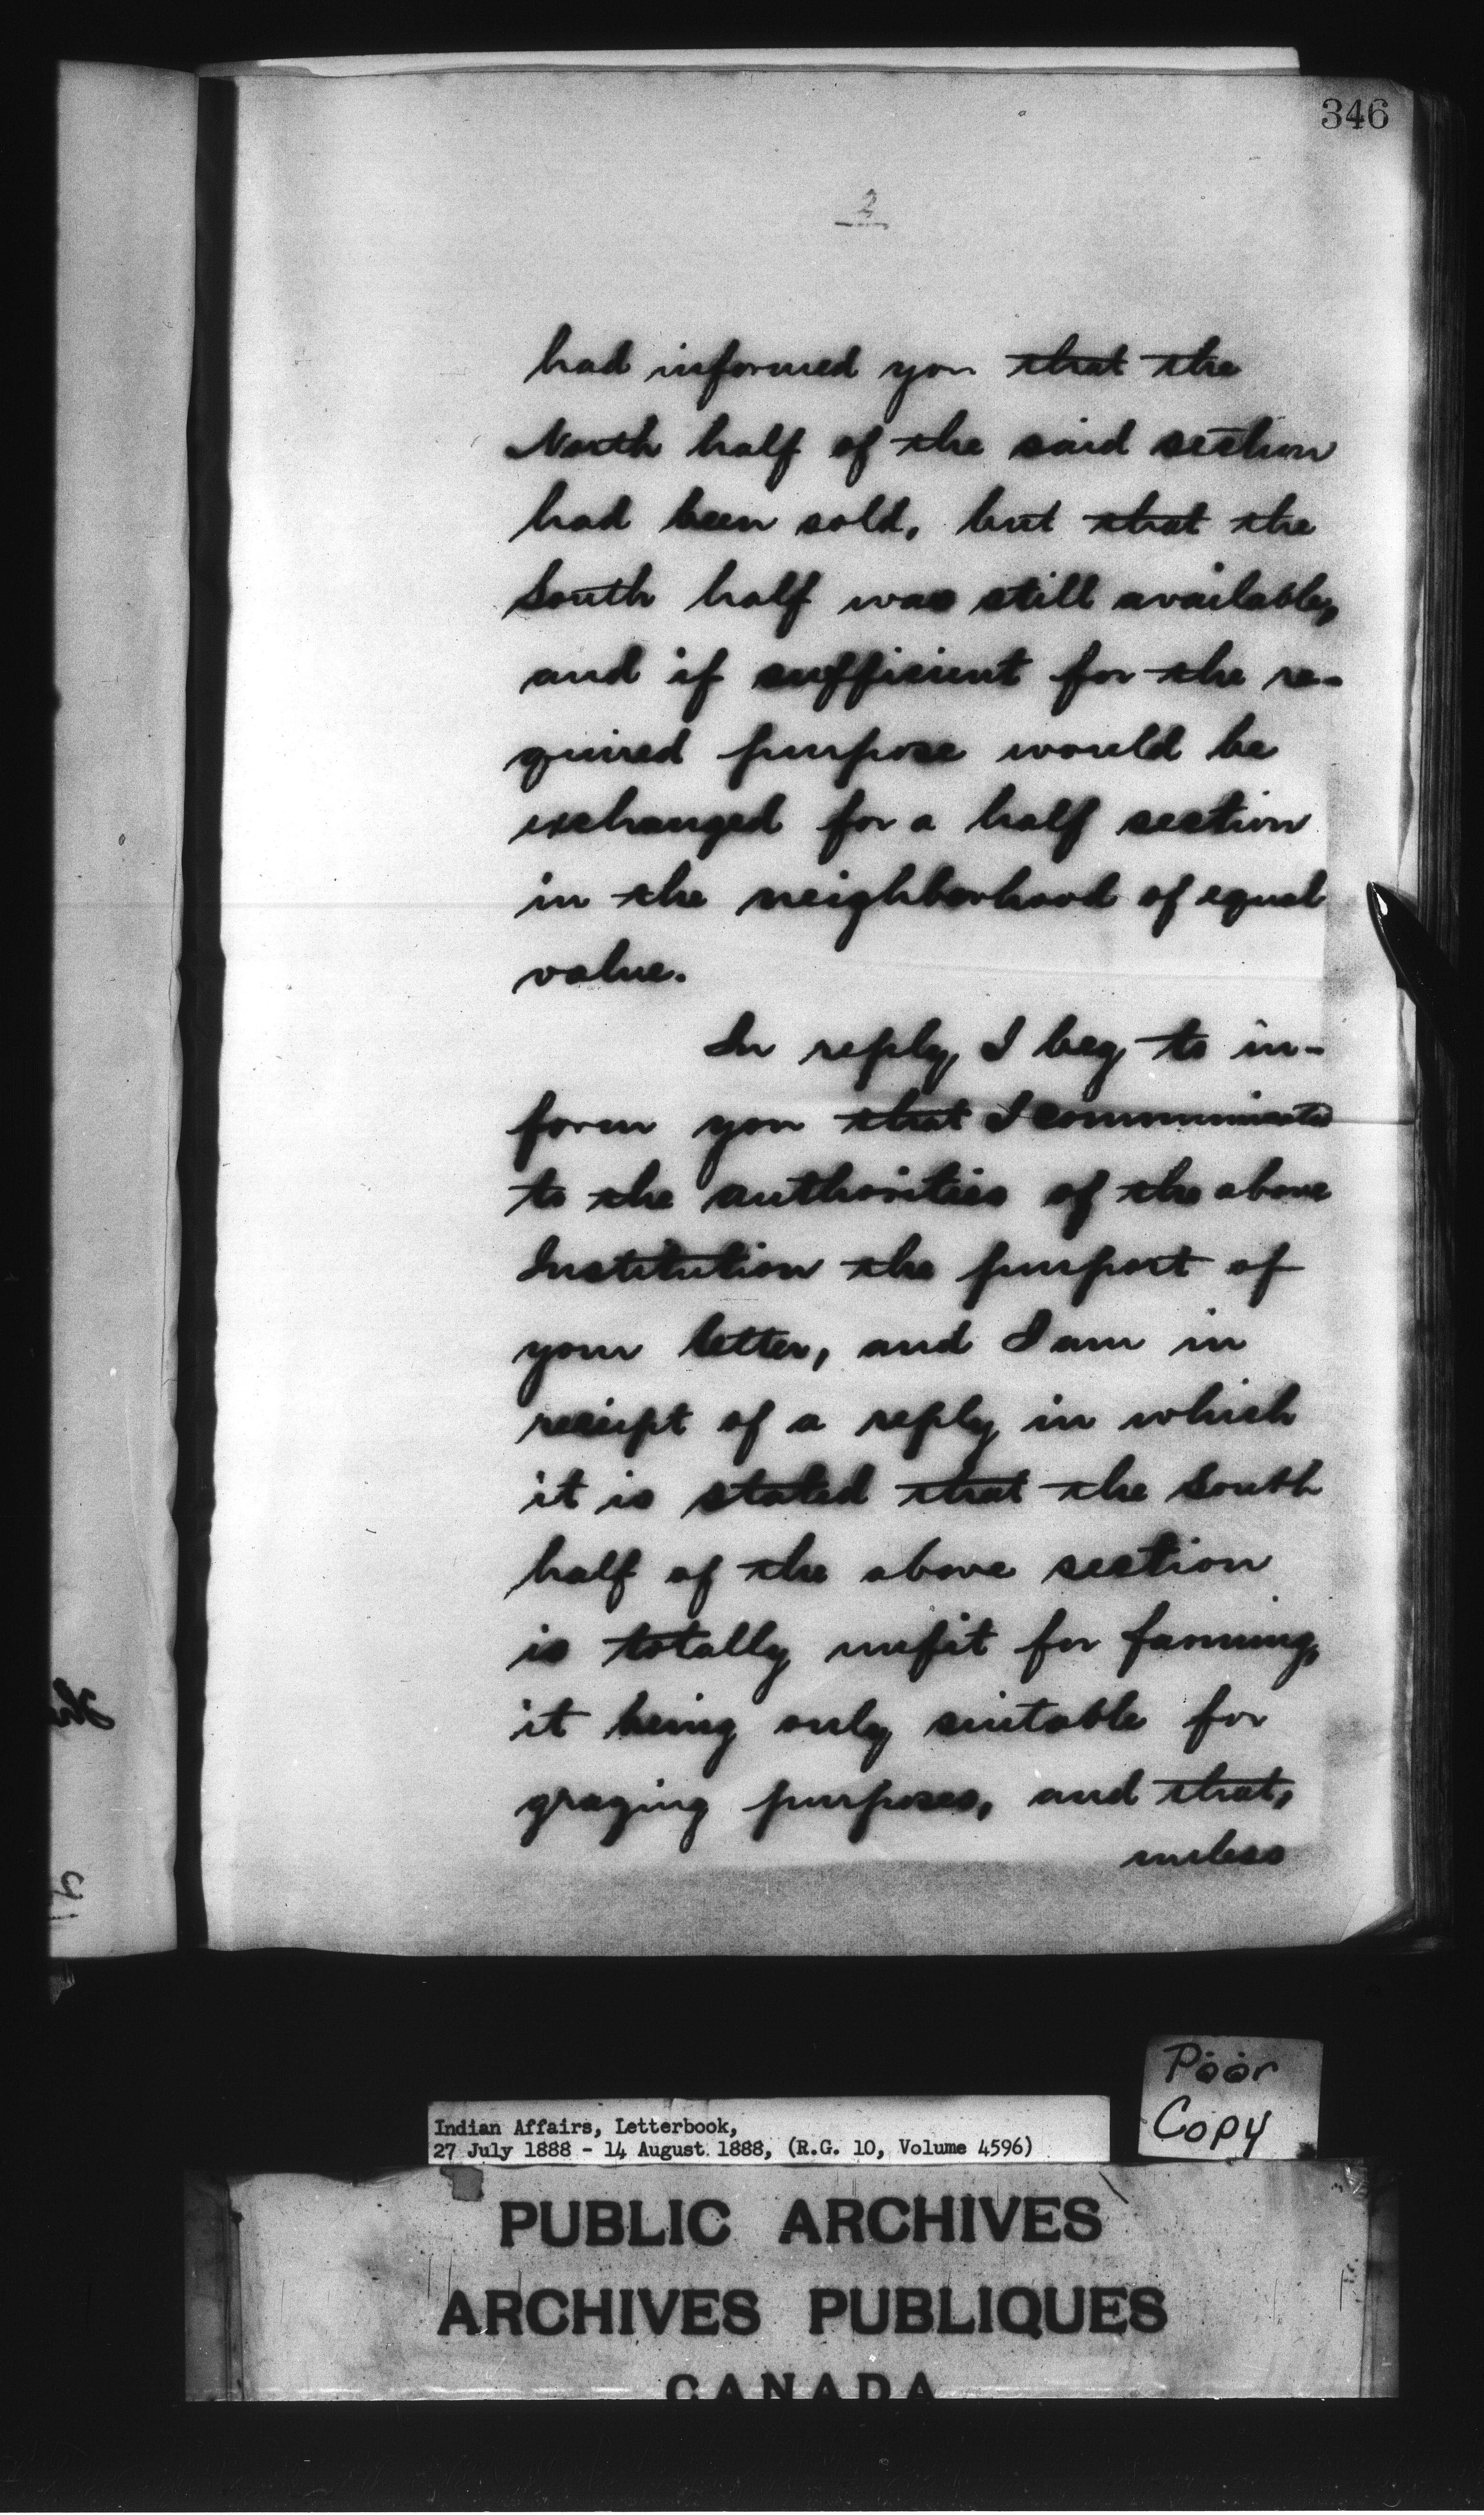 346
2
had informed you that the
North half of the said section
had been sold, but that the
South half was still available,
and if sufficient for the re-
quired purpose would be
exchanged for a half section
in the neighborhood of equal
value.
In reply, I beg to in-
form you that I communicated
to the authorities of the above
Institution the purport of
your letter, and I am in
receipt of a reply in which
it is stated that the South
half of the above section
is totally unfit for farming,
it being only suitable for
grazing purposes, and that,
unless
Poor
Copy
Indian Affairs, Letterbook,
27 July 1888 - 14 August 1888, (R.G. 10, Volume 4596)
PUBLIC ARCHIVES
ARCHIVES PUBLIQUES
CANADA